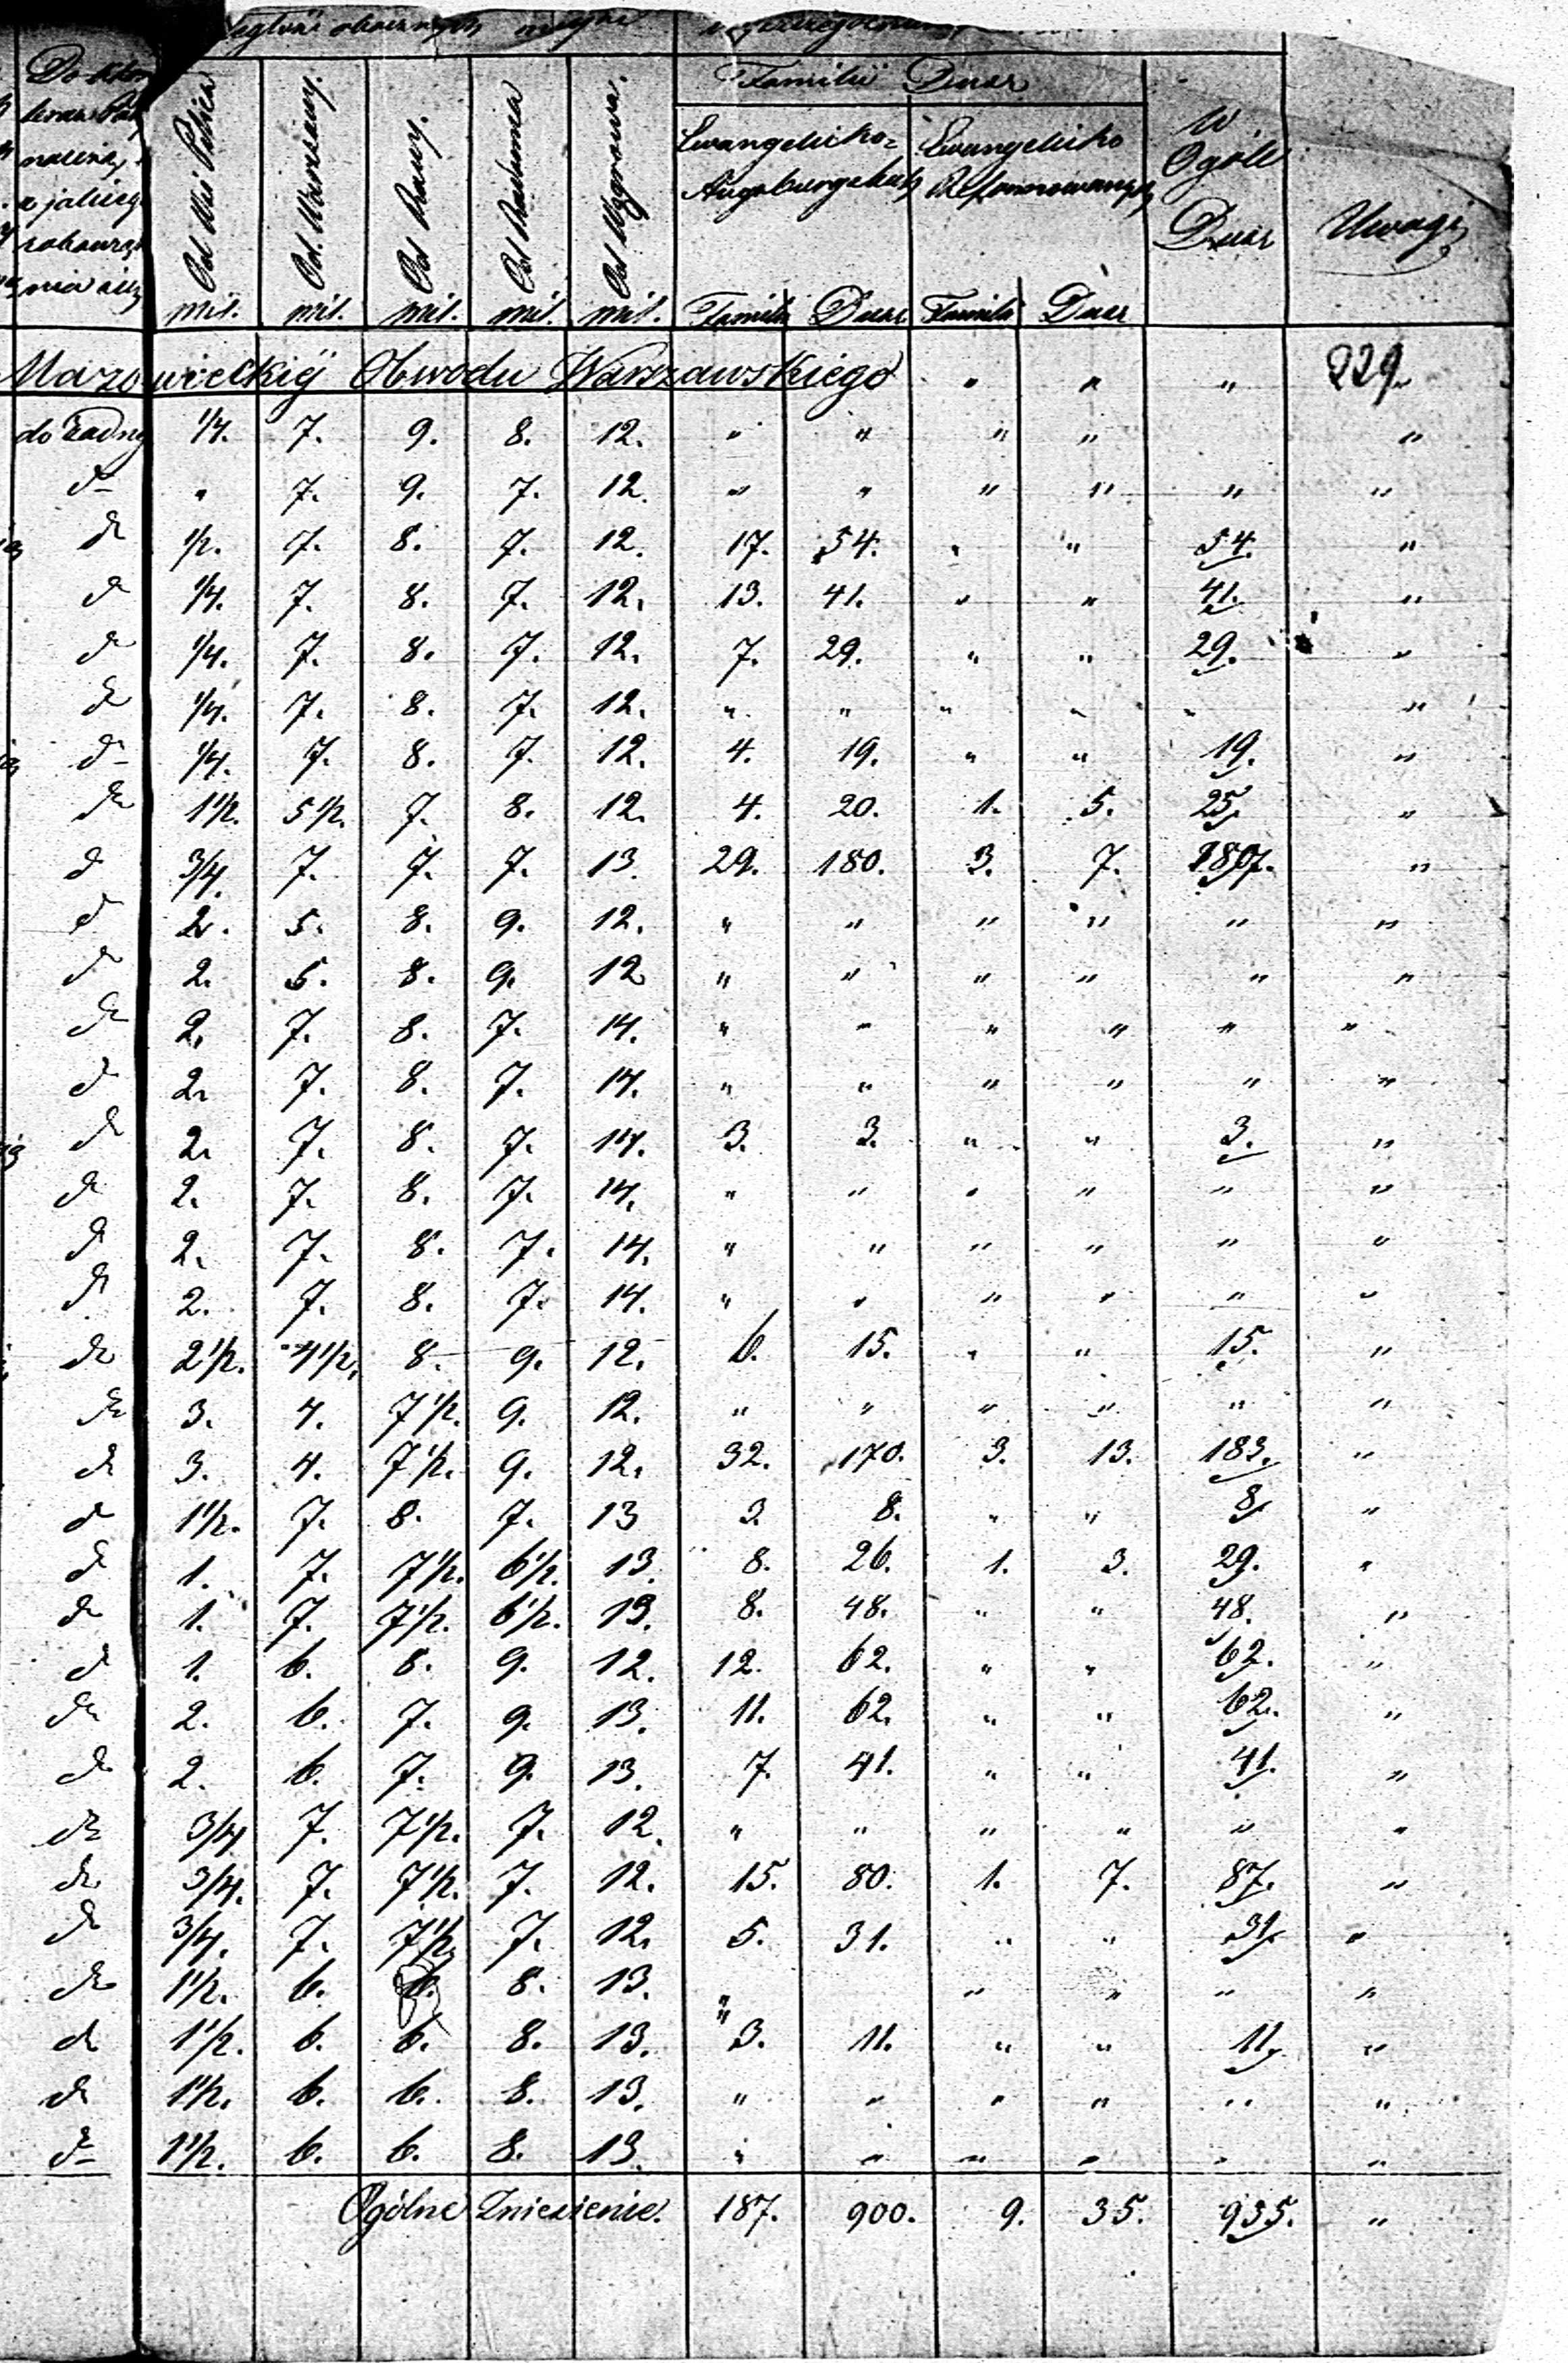 Familii Dusz
Ewangelicko- Augsburgskich
Ewangelicko Reformowanych
W Ogóle Dusz
Uwagi
mil. mil. mil. mil. mil. Familii Dusz Familii Dusz
Mazowieckiej Obwodu Warszawskiego " " " 229.
do żadnej 1/4. 7. 9. 8. 12. " " " " "
d " 7. 9. 7. 12. " " " " " "
d 1/2. 7. 8. 7. 12. 17. 54. " " 54. "
d 1/4. 7. 8. 7. 12. 13. 41. " " 41. "
d 1/4. 7. 8. 7. 12. 7. 29. " " 29. "
d 1/4. 7. 8. 7. 12. " " " " " "
d 1/4. 7. 8. 7. 12. 4. 19. " " 19. "
d 1 1/2. 5 1/2. 7. 8. 12. 4. 20. 1. 5. 25. "
d 3/4. 7. 7. 7. 13. 29. 180. 3. 7. 187. "
d 2. 5. 8. 9. 12. " " " " " "
d 2. 5. 8. 9. 12 " " " " " "
d 2. 7. 8. 7. 14. " " " " " "
d 2. 7. 8. 7. 14. " " " " " "
d 2. 7. 8. 7. 14. 3. 3. " " 3. "
d 2. 7. 8. 7. 14. " " " " " "
d 2. 7. 8. 7. 14. " " " " " "
d 2. 7. 8. 7. 14. " " " " " "
d 2 1/2. 4 1/2. 8. 9. 12. 6. 15. " " 15. "
d 3. 4. 7 1/2. 9. 12. " " " " " "
d 3. 4. 7 1/2. 9. 12. 32. 170. 3. 13. 183. "
d 1 1/2. 7. 8. 7. 13 3. 8. " " 8. "
d 1. 7. 7 1/2. 6 1/2. 13. 8. 26. 1. 3. 29. "
d 1. 7. 7 1/2. 6 1/2. 13. 8. 48. " " 48. "
d 1. 6. 8. 9. 12. 12. 62. " " 62. "
d 2. 6. 7. 9. 13. 11. 62. " " 62. "
d 2. 6. 7. 9. 13. 7. 41. " " 41. "
d 3/4 7. 7 1/2. 7. 12. " " " " " "
d 3/4. 7. 7 1/2. 7. 12. 15. 80. 1. 7. 87. "
d 3/4. 7. 7 1/2 7. 12. 5. 31. " " 31. "
d 1 1/2. 6. 6. 8. 13. " " " " "
d 1 1/2. 6. 6. 8. 13. " 3. 11. " " 11. "
d 1 1/2. 6. 6. 8. 13. " " " " " "
d 1 1/2. 6. 6. 8. 13. " " " " " "
Ogólne Zniesienie. 187. 900. 9. 35. 935. "